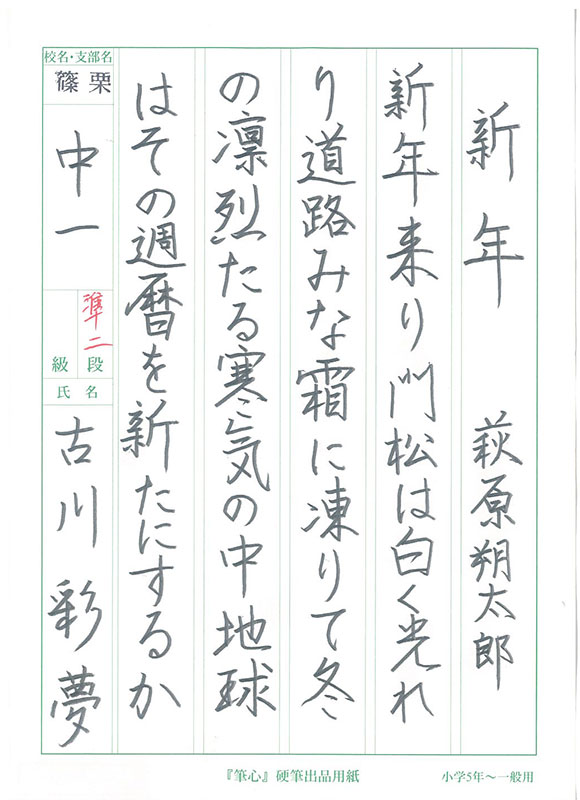 新年 萩原朔太郎
新年来り門松は白く光れ
り道路みな霜に凍りて冬
の凛烈たる寒気の中地球
はその週暦を新たにするか
校名・支部名
篠栗
中一
準二
段
級
氏名
古川彩夢
『筆心』硬筆出品用紙
小学5年〜一般用